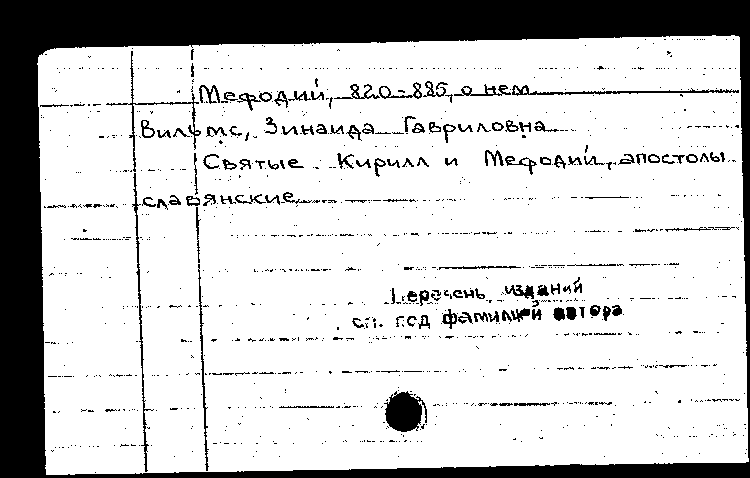 Мефодий, 820-885, о нем
Вильмс, Зинаида Гавриловна
Святые Кирилл и Мефодий, апостолы
славянские
Перечень изданий
см. под фамилией автора